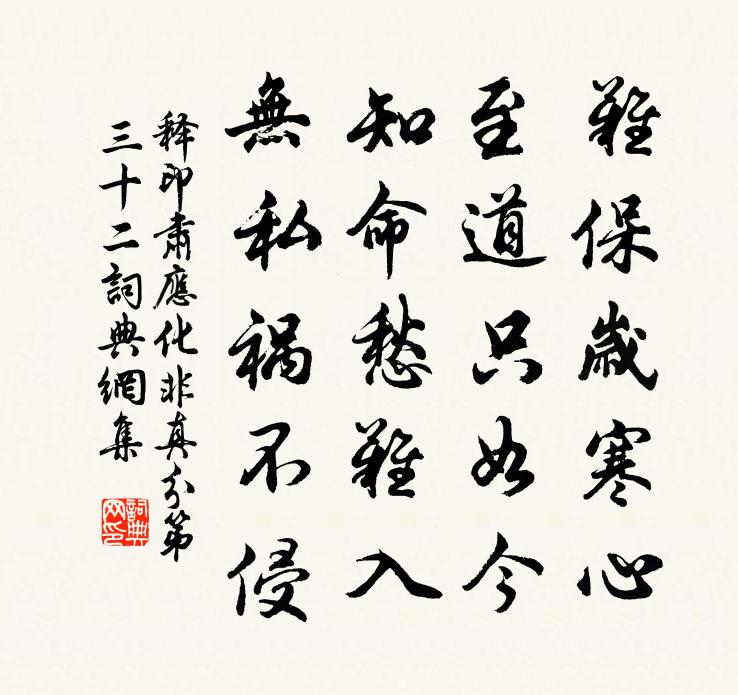 難保歲寒心
至道只如今
知命愁難入
無私禍不侵
释印肅應化非真分第
三十二詞典網集
詞典
网印